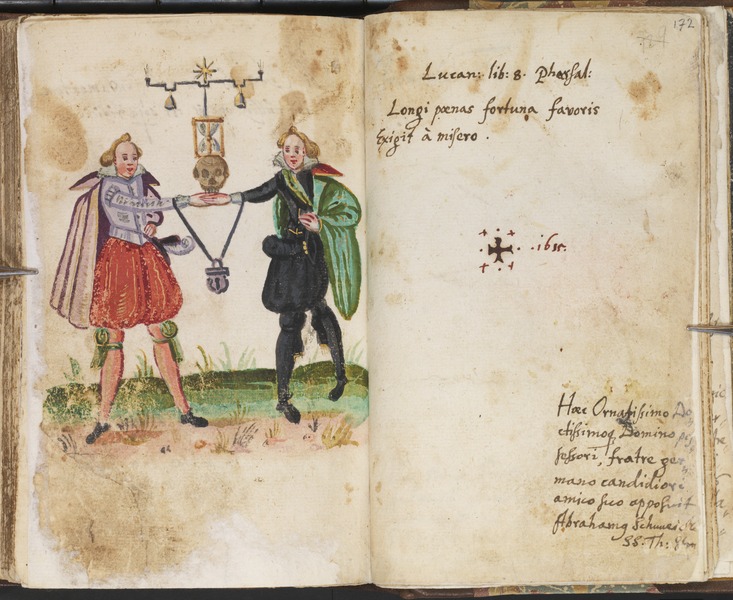 172
Lucan: lib: 8. Pharsal:
Longi pœnas fortuna favoris
Exigit à misero.
Hæc Ornatissimo Do
ctissimoq Domino pos
sessori, fratre ger
mano candidiori
amico suo apposuit
Abrahamq
SS. Th: